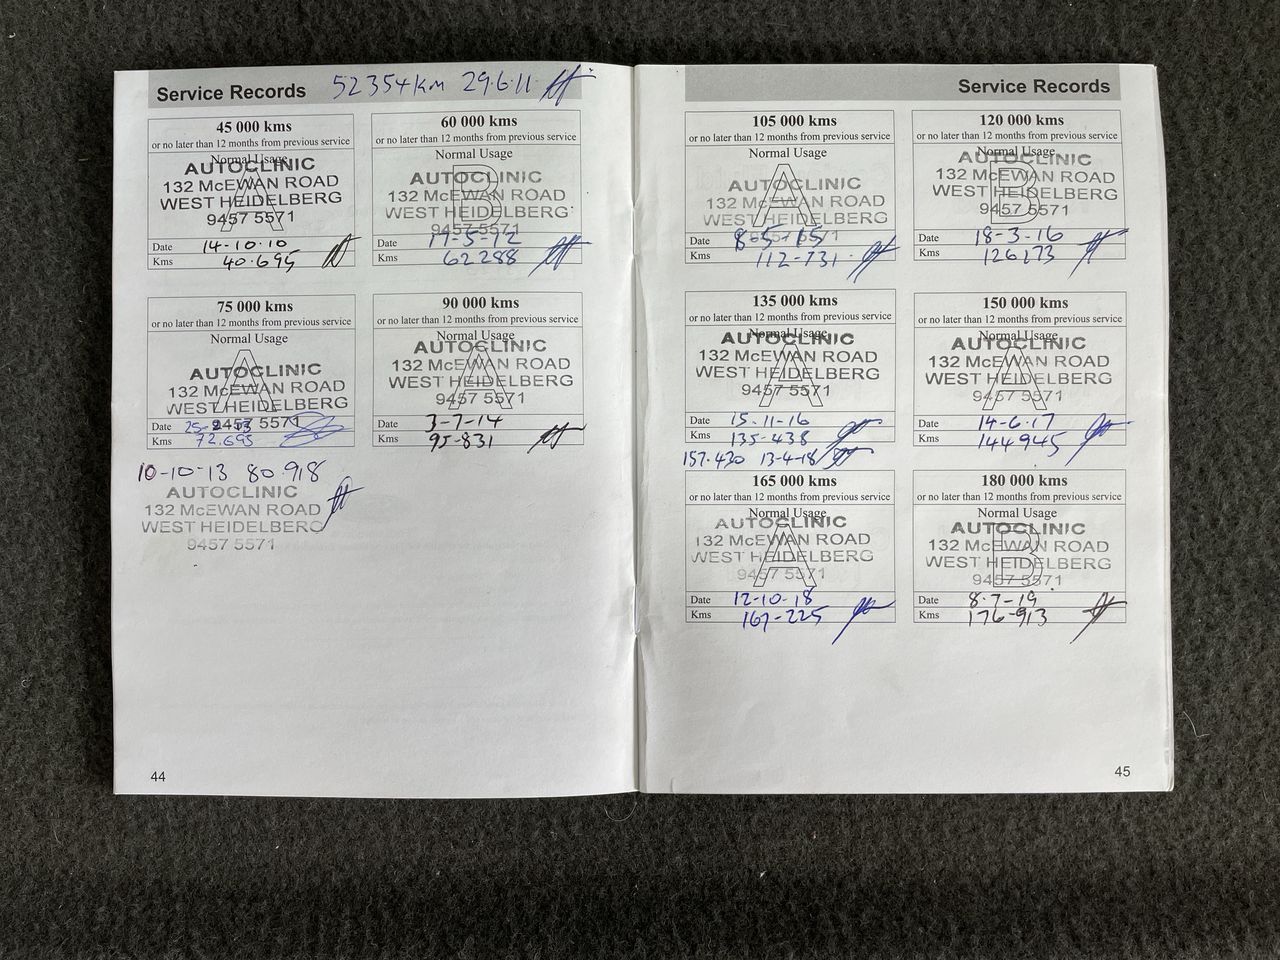 Service Records 52354km 29.6.11
45 000 kms
or no later than 12 months from previous service
Normal Usage
A
AUTOCLINIC
132 McEWAN ROAD
WEST HEIDELBERG
9457 5571
Date 14-10-10
Kms 40.695
60 000 kms
or no later than 12 months from previous service
Normal Usage
B
AUTOCLINIC
132 McEWAN ROAD
WEST HEIDELBERG
9457 5571
Date 17-5-12
Kms 62288
75 000 kms
or no later than 12 months from previous service
Normal Usage
A
AUTOCLINIC
132 McEWAN ROAD
WEST HEIDELBERG
9457 5571
Date
Kms 72.695
10-10-13 80.918
AUTOCLINIC
132 McEWAN ROAD
WEST HEIDELBERG
9457 5571
90 000 kms
or no later than 12 months from previous service
Normal Usage
A
AUTOCLINIC
132 McEWAN ROAD
WEST HEIDELBERG
9457 5571
Date 3-7-14
Kms 95-831
44
Service Records
105 000 kms
or no later than 12 months from previous service
Normal Usage
A
AUTOCLINIC
132 McEWAN ROAD
WEST HEIDELBERG
9457 5571
Date 8-5-15
Kms 112-731
120 000 kms
or no later than 12 months from previous service
Normal Usage
B
AUTOCLINIC
132 McEWAN ROAD
WEST HEIDELBERG
9457 5571
Date 18-3-16
Kms 126173
135 000 kms
or no later than 12 months from previous service
Normal Usage
A
AUTOCLINIC
132 McEWAN ROAD
WEST HEIDELBERG
9457 5571
Date 15.11-16
Kms 135-438
157.430 13-4-18
150 000 kms
or no later than 12 months from previous service
Normal Usage
A
AUTOCLINIC
132 McEWAN ROAD
WEST HEIDELBERG
9457 5571
Date 14-6-17
Kms 144945
165 000 kms
or no later than 12 months from previous service
Normal Usage
A
AUTOCLINIC
132 McEWAN ROAD
WEST HEIDELBERG
9457 5571
Date 12-10-18
Kms 167-225
180 000 kms
or no later than 12 months from previous service
Normal Usage
B
AUTOCLINIC
132 McEWAN ROAD
WEST HEIDELBERG
9457 5571
Date 8.7-19
Kms 176-913
45